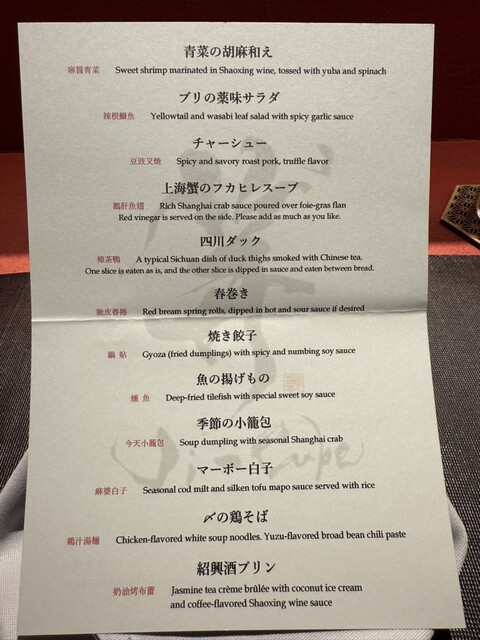 青菜の胡麻和え
麻醤青菜 Sweet shrimp marinated in Shaoxing wine, tossed with yuba and spinach
ブリの薬味サラダ
辣根鰤魚 Yellowtail and wasabi leaf salad with spicy garlic sauce
チャーシュー
豆豉叉焼 Spicy and savory roast pork, truffle flavor
上海蟹のフカヒレスープ
鵝肝魚翅 Rich Shanghai crab sauce poured over foie-gras flan
Red vinegar is served on the side. Please add as much as you like.
四川ダック
樟茶鴨 A typical Sichuan dish of duck thighs smoked with Chinese tea.
One slice is eaten as is, and the other slice is dipped in sauce and eaten between bread.
春巻き
脆皮春捲 Red bream spring rolls, dipped in hot and sour sauce if desired
焼き餃子
鍋 貼 Gyoza (fried dumplings) with spicy and numbing soy sauce
魚の揚げもの
燻 魚 Deep-fried tilefish with special sweet soy sauce
季節の小籠包
今天小籠包 Soup dumpling with seasonal Shanghai crab
マーボー白子
麻婆白子 Seasonal cod milt and silken tofu mapo sauce served with rice
〆の鶏そば
鶏汁湯麺 Chicken-flavored white soup noodles. Yuzu-flavored broad bean chili paste
紹興酒プリン
奶油烤布蕾 Jasmine tea crème brûlée with coconut ice cream
and coffee-flavored Shaoxing wine sauce